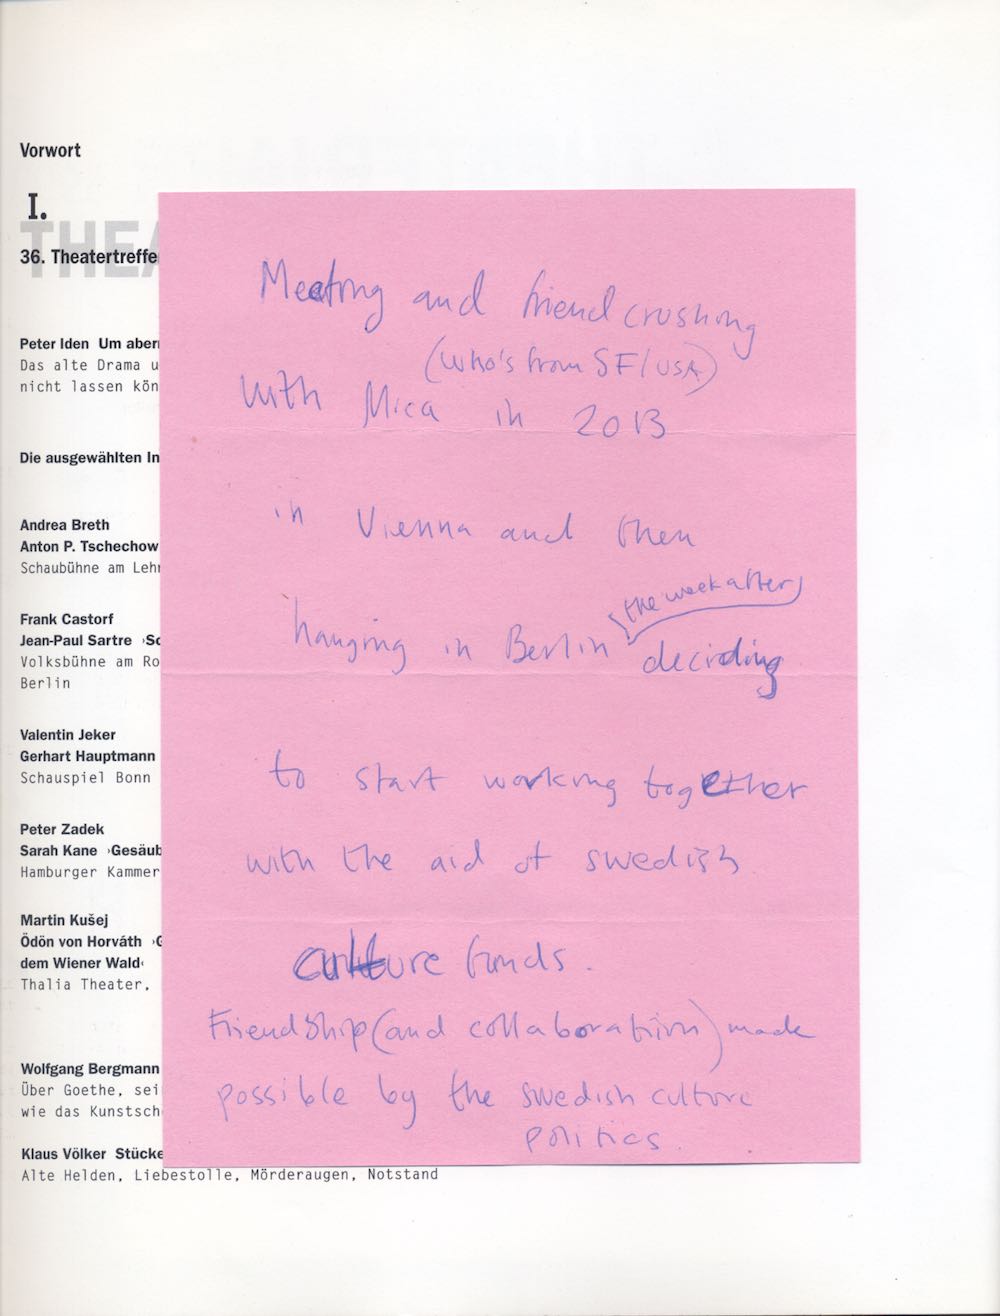 Vorwort
I.
THEA
36. Theatertreffe
Peter Iden Um aber
Das alte Drama u
nicht lassen kön
Die ausgewählten In
Andrea Breth
Anton P. Tschechow
Schaubühne am Leh
Frank Castorf
Jean-Paul Sartre ›Sc
Volksbühne am Ro
Berlin
Valentin Jeker
Gerhart Hauptmann
Schauspiel Bonn
Peter Zadek
Sarah Kane ›Gesäub
Hamburger Kammer
Martin Kušej
Ödön von Horváth ›G
dem Wiener Wald‹
Thalia Theater,
Wolfgang Bergmann
Über Goethe, sei
wie das Kunstsch
Klaus Völker Stücke
Alte Helden, Liebestolle, Mörderaugen, Notstand
Meeting and friend crushing
(who's from SF/USA)
with Mica in 2013
in Vienna and then
the week after
hanging in Berlin deciding
to start working together
with the aid of swedish
culture funds.
Friendship (and collaboration) made
possible by the swedish culture
politics.